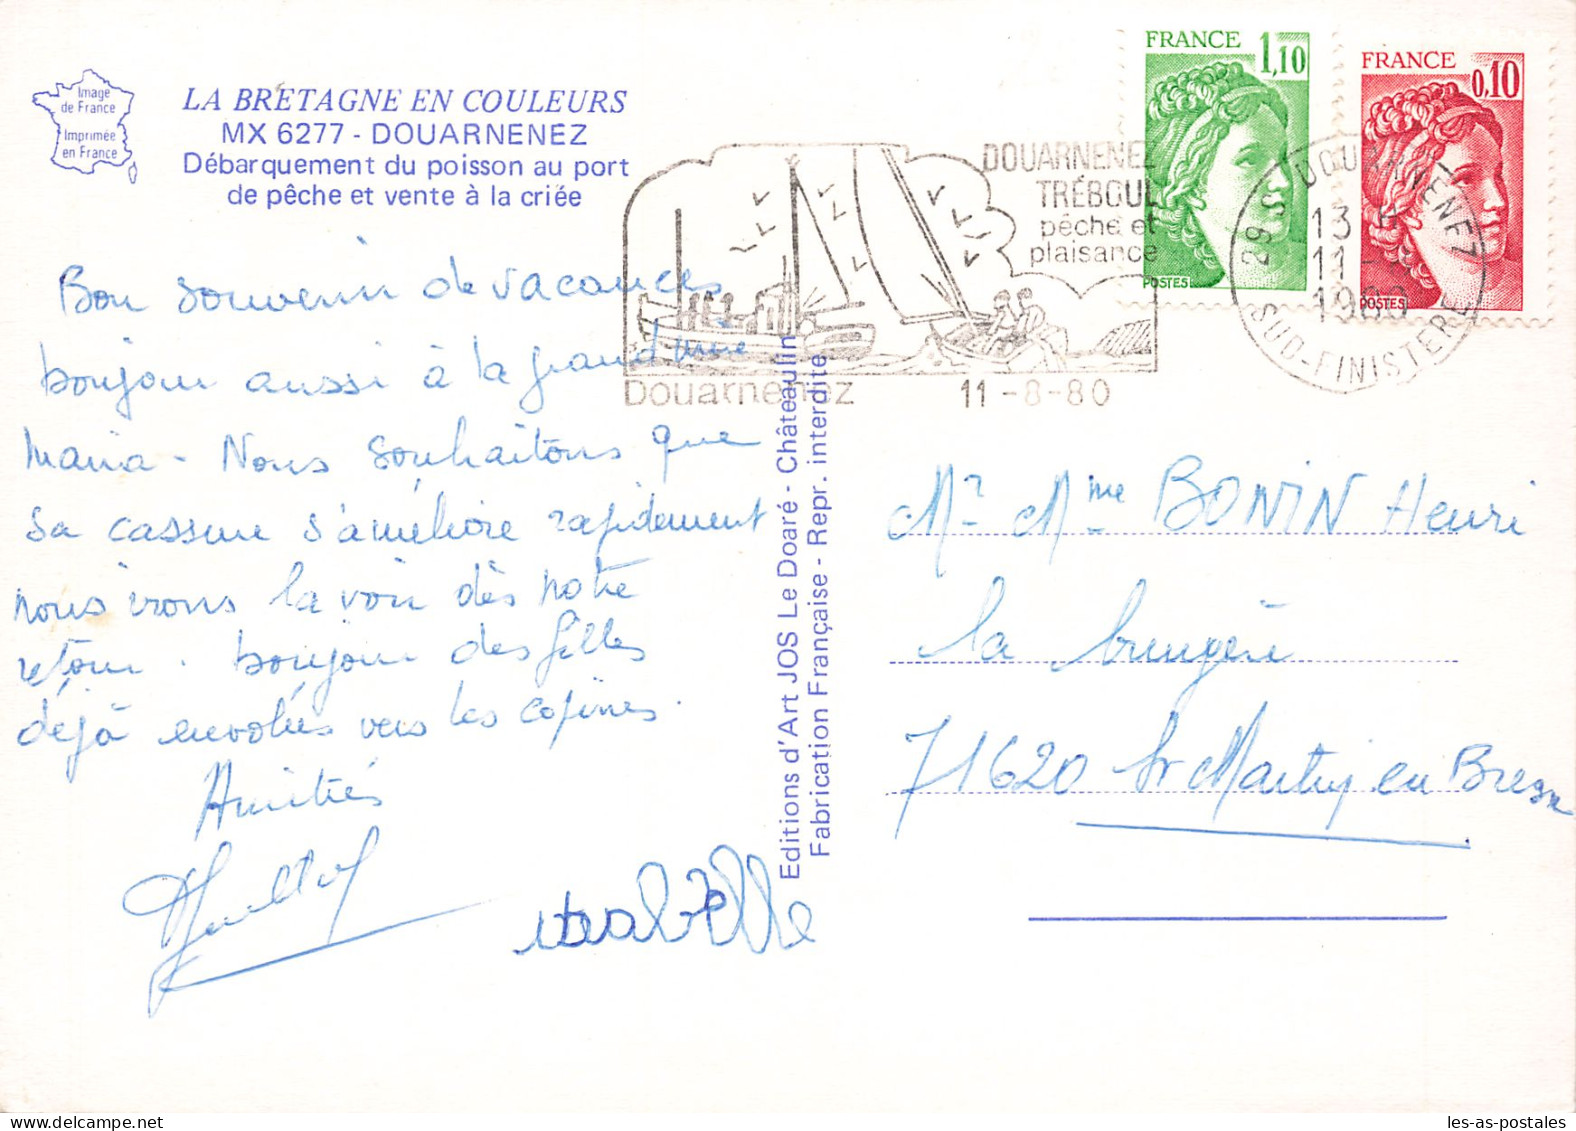 Image
de France
Imprimée
en France
LA BRETAGNE EN COULEURS
MX 6277 - DOUARNENEZ
Débarquement du poisson au port
de pêche et vente à la criée
FRANCE
1,10
POSTES
FRANCE
0,10
POSTES
DOUARNENEZ
TRÉBOUL
pêche et
plaisance
Douarnenez 11-8-80
29 S DOUARNENEZ
13 H
11-8
1980
SUD-FINISTERE
Bon souvenir de vacances
bonjour aussi à la grand mère
Maria - Nous souhaitons que
sa cassure s'améliore rapidement
nous irons la voir dès notre
retour. bonjour des filles
déjà envolées vers les copines.
Amitiés
isabelle
Editions d'Art JOS Le Doaré - Châteaulin
Fabrication Française - Repr. interdite
Mr Mme BONIN Henri
la bruyère
71620 St Martin en Bresse
les-as-postales